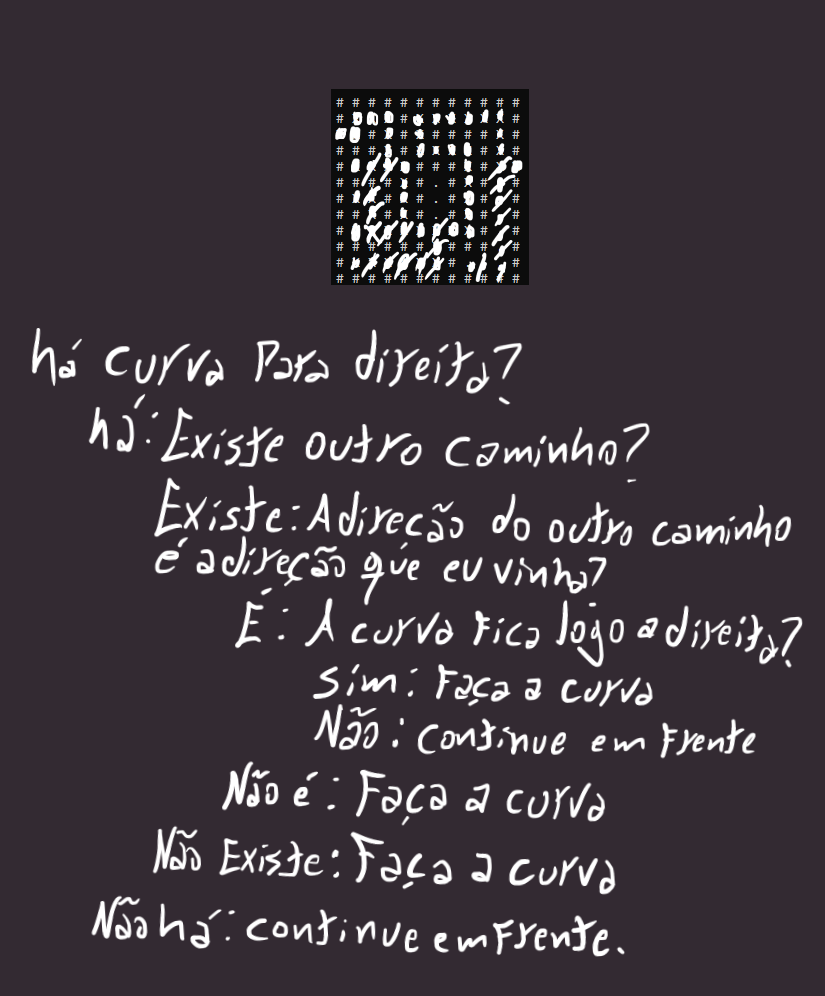 há curva Para direita?
há: Existe outro caminho?
Existe: A direção do outro caminho
é a direção que eu vinha?
É: A curva Fica logo a direita?
Sim: Faça a curva
Não: continue em Frente
Não é: Faça a curva
Não Existe: Faça a curva
Não há: continue em Frente.